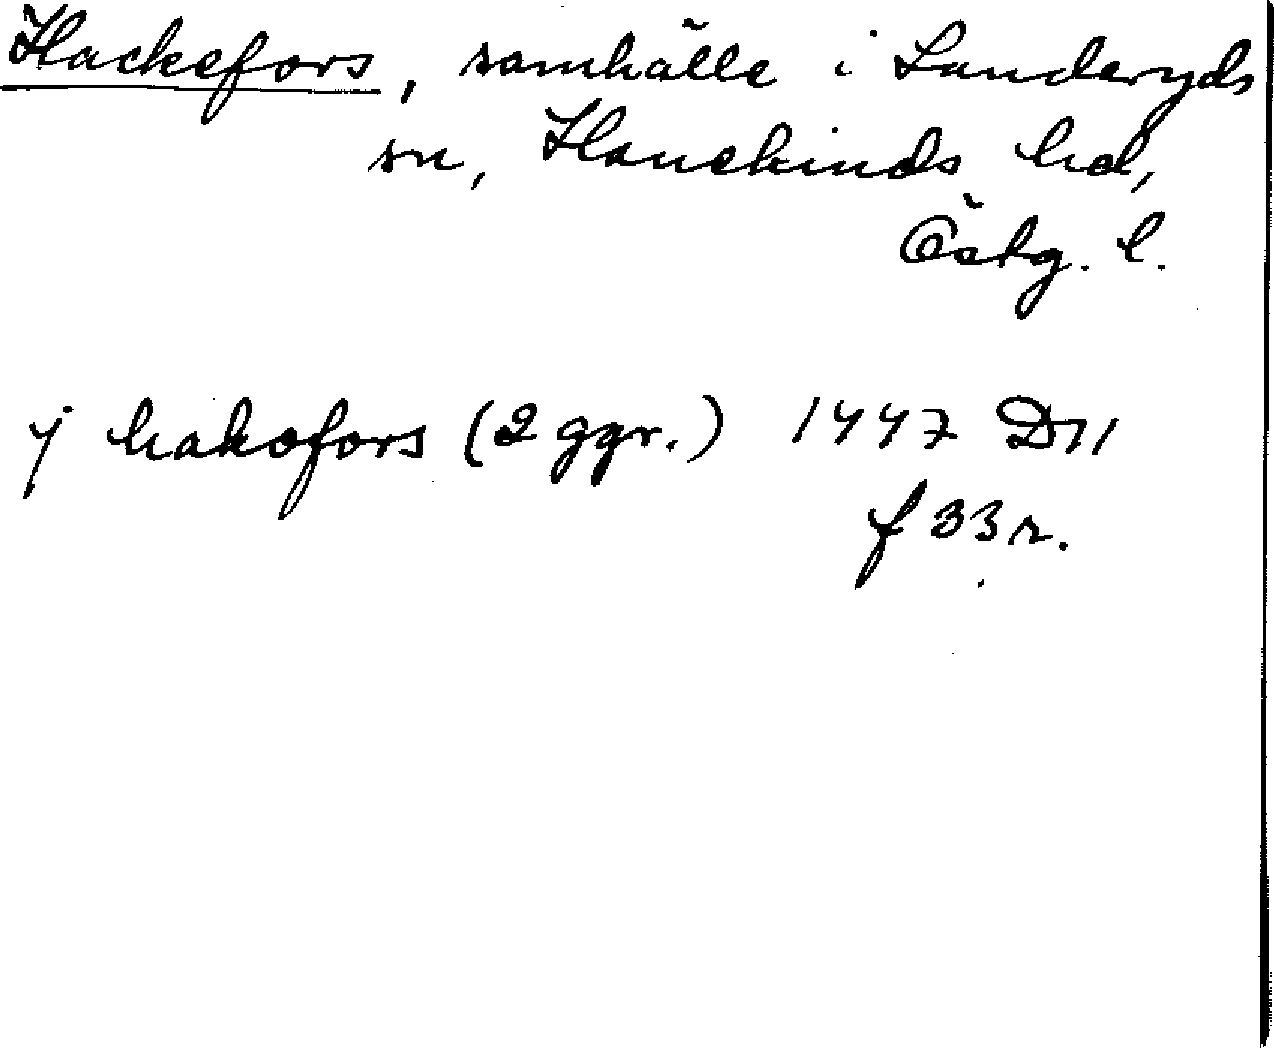 Hackefors, samhälle i Landeryds
sn, Hanekinds hd,
Östg. l.
j hakofors (2 ggr.) 1447 D11
f 33r.